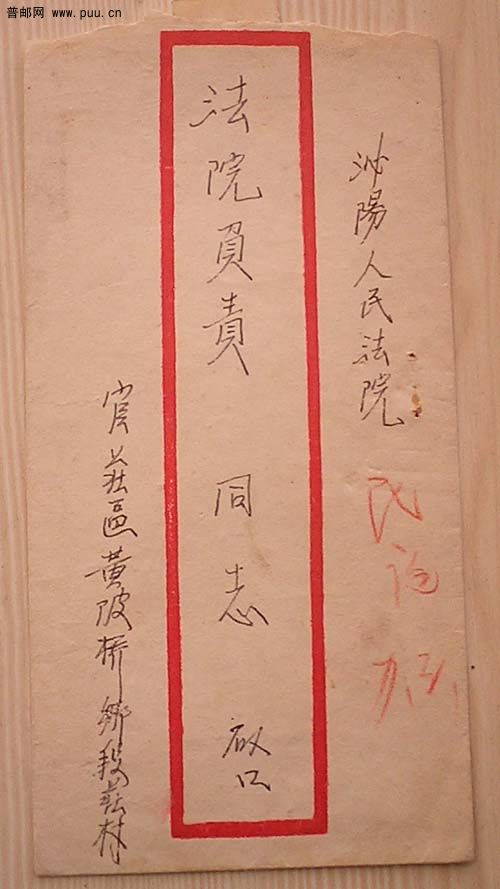 普邮网
www.puu.cn
泌陽人民法院
民
法院負責 同志 啟
官莊區黄陂桥鄉段莊村